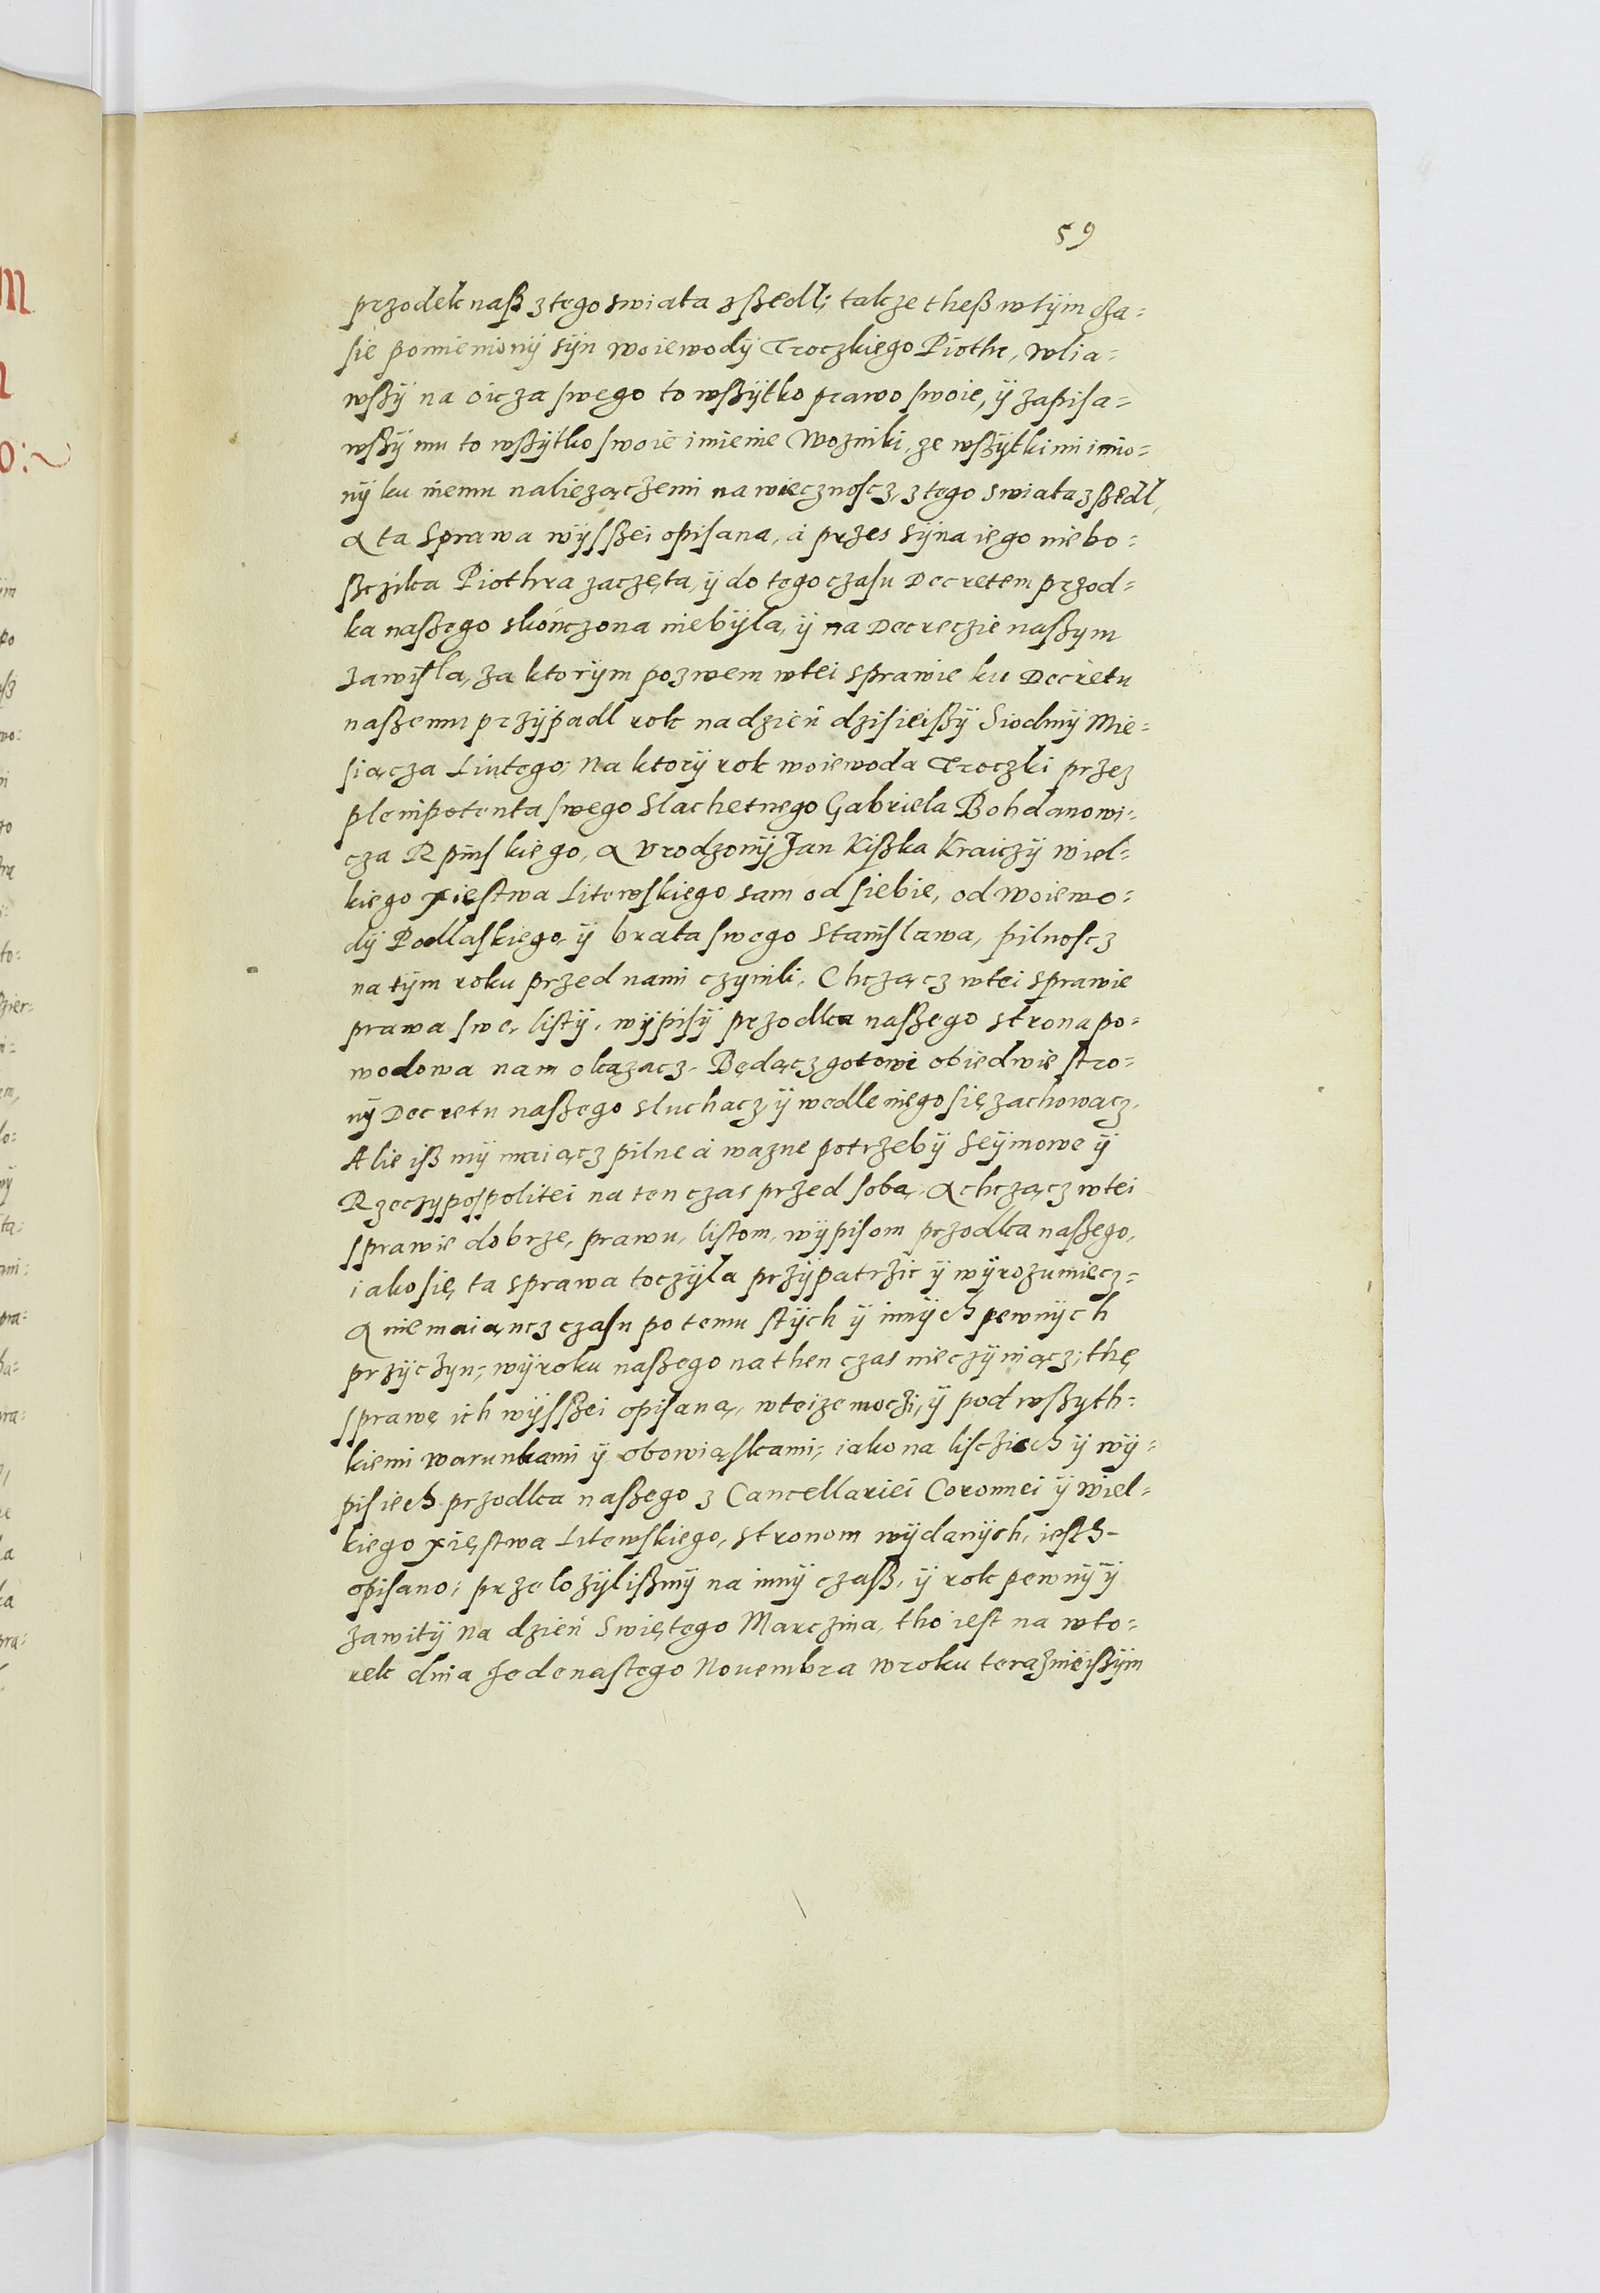 59
przodek naß z tego swiata zßedl; takze theß w tÿm cza=
sie pomienionÿ sÿn woiewodÿ Troczkiego Piothr, wlia=
wßÿ na oicza swego to wßÿtko prawo swoie, ÿ zapisa=
wßÿ mu to wßÿtko swoie imienie Wozniki, ze wßÿtkimi imio=
nÿ ku niemu naliezączemi na wiecznoscz, z tego swiata zßedl,
A ta sprawa wÿsßei opisana, á przes sÿna iego niebo=
ßczika Piothra zaczęta, ÿ do tego czasu Decretem przod=
ka naßego skończona niebÿla, ÿ na Decreczie naßym
zawisla, za ktorÿm pozwem w tei sprawie ku Decretu
naßemu przÿpadl rok na dzień dzisieißÿ Siodmÿ Mie=
siącza Liutego; Na ktorÿ rok woiewoda Troczki przez
plenipotenta swego Slachetnego Gabriela Bohdanowi=
cza Rpinskiego, A Vrodzonÿ Jan Kißka Kraiczÿ wiel=
kiego xięstwa Litewskiego sam od siebie, od woiewo=
dÿ Podlaskiego ÿ brata swego Stanislawa, pilnoscz
na tÿm roku przed nami czynili, Chcząc z w tei sprawie
prawa swe, listÿ, wÿpisÿ przodka naßego strona po=
wodowa nam okazacz, Będącz gotowi obiedwie stro=
nÿ Decretu naßego sluchacz, ÿ wedle niego się zachowacz.
Alie iß mÿ maiącz pilne á wazne potrzebÿ Seÿmowe ÿ
Rzeczÿpospolitei na ten czas przed sobą, A chcząc z w tei
sprawie dobrze, prawu, listom, wÿpisom przodka naßego,
iako się ta sprawa toczÿla przÿpatrzić ÿ wÿrozumiecz=
A nie maiąncz czasu po temu s tÿch ÿ innÿch pewnÿch
przÿczyn; wÿroku naßego na then czas nie czÿniącz; thę
sprawę ich wÿsßei opisaną, w teize moczi, ÿ pod wßyth=
kiemi warunkami ÿ obowiąskami; iako na lisciech ÿ wÿ=
pisiech przodka naßego z Cancellariei Coronnei ÿ wiel=
kiego xięstwa Litewskiego, stronom wÿdanÿch, iesth-
opisano; przelozÿlißmÿ na innÿ czaß, ÿ rok pewnÿ ÿ
zawitÿ na dzień Swiętego Marczina, tho iest na wto=
rek dnia Jedenastego Nouembra w roku teraznieißÿm